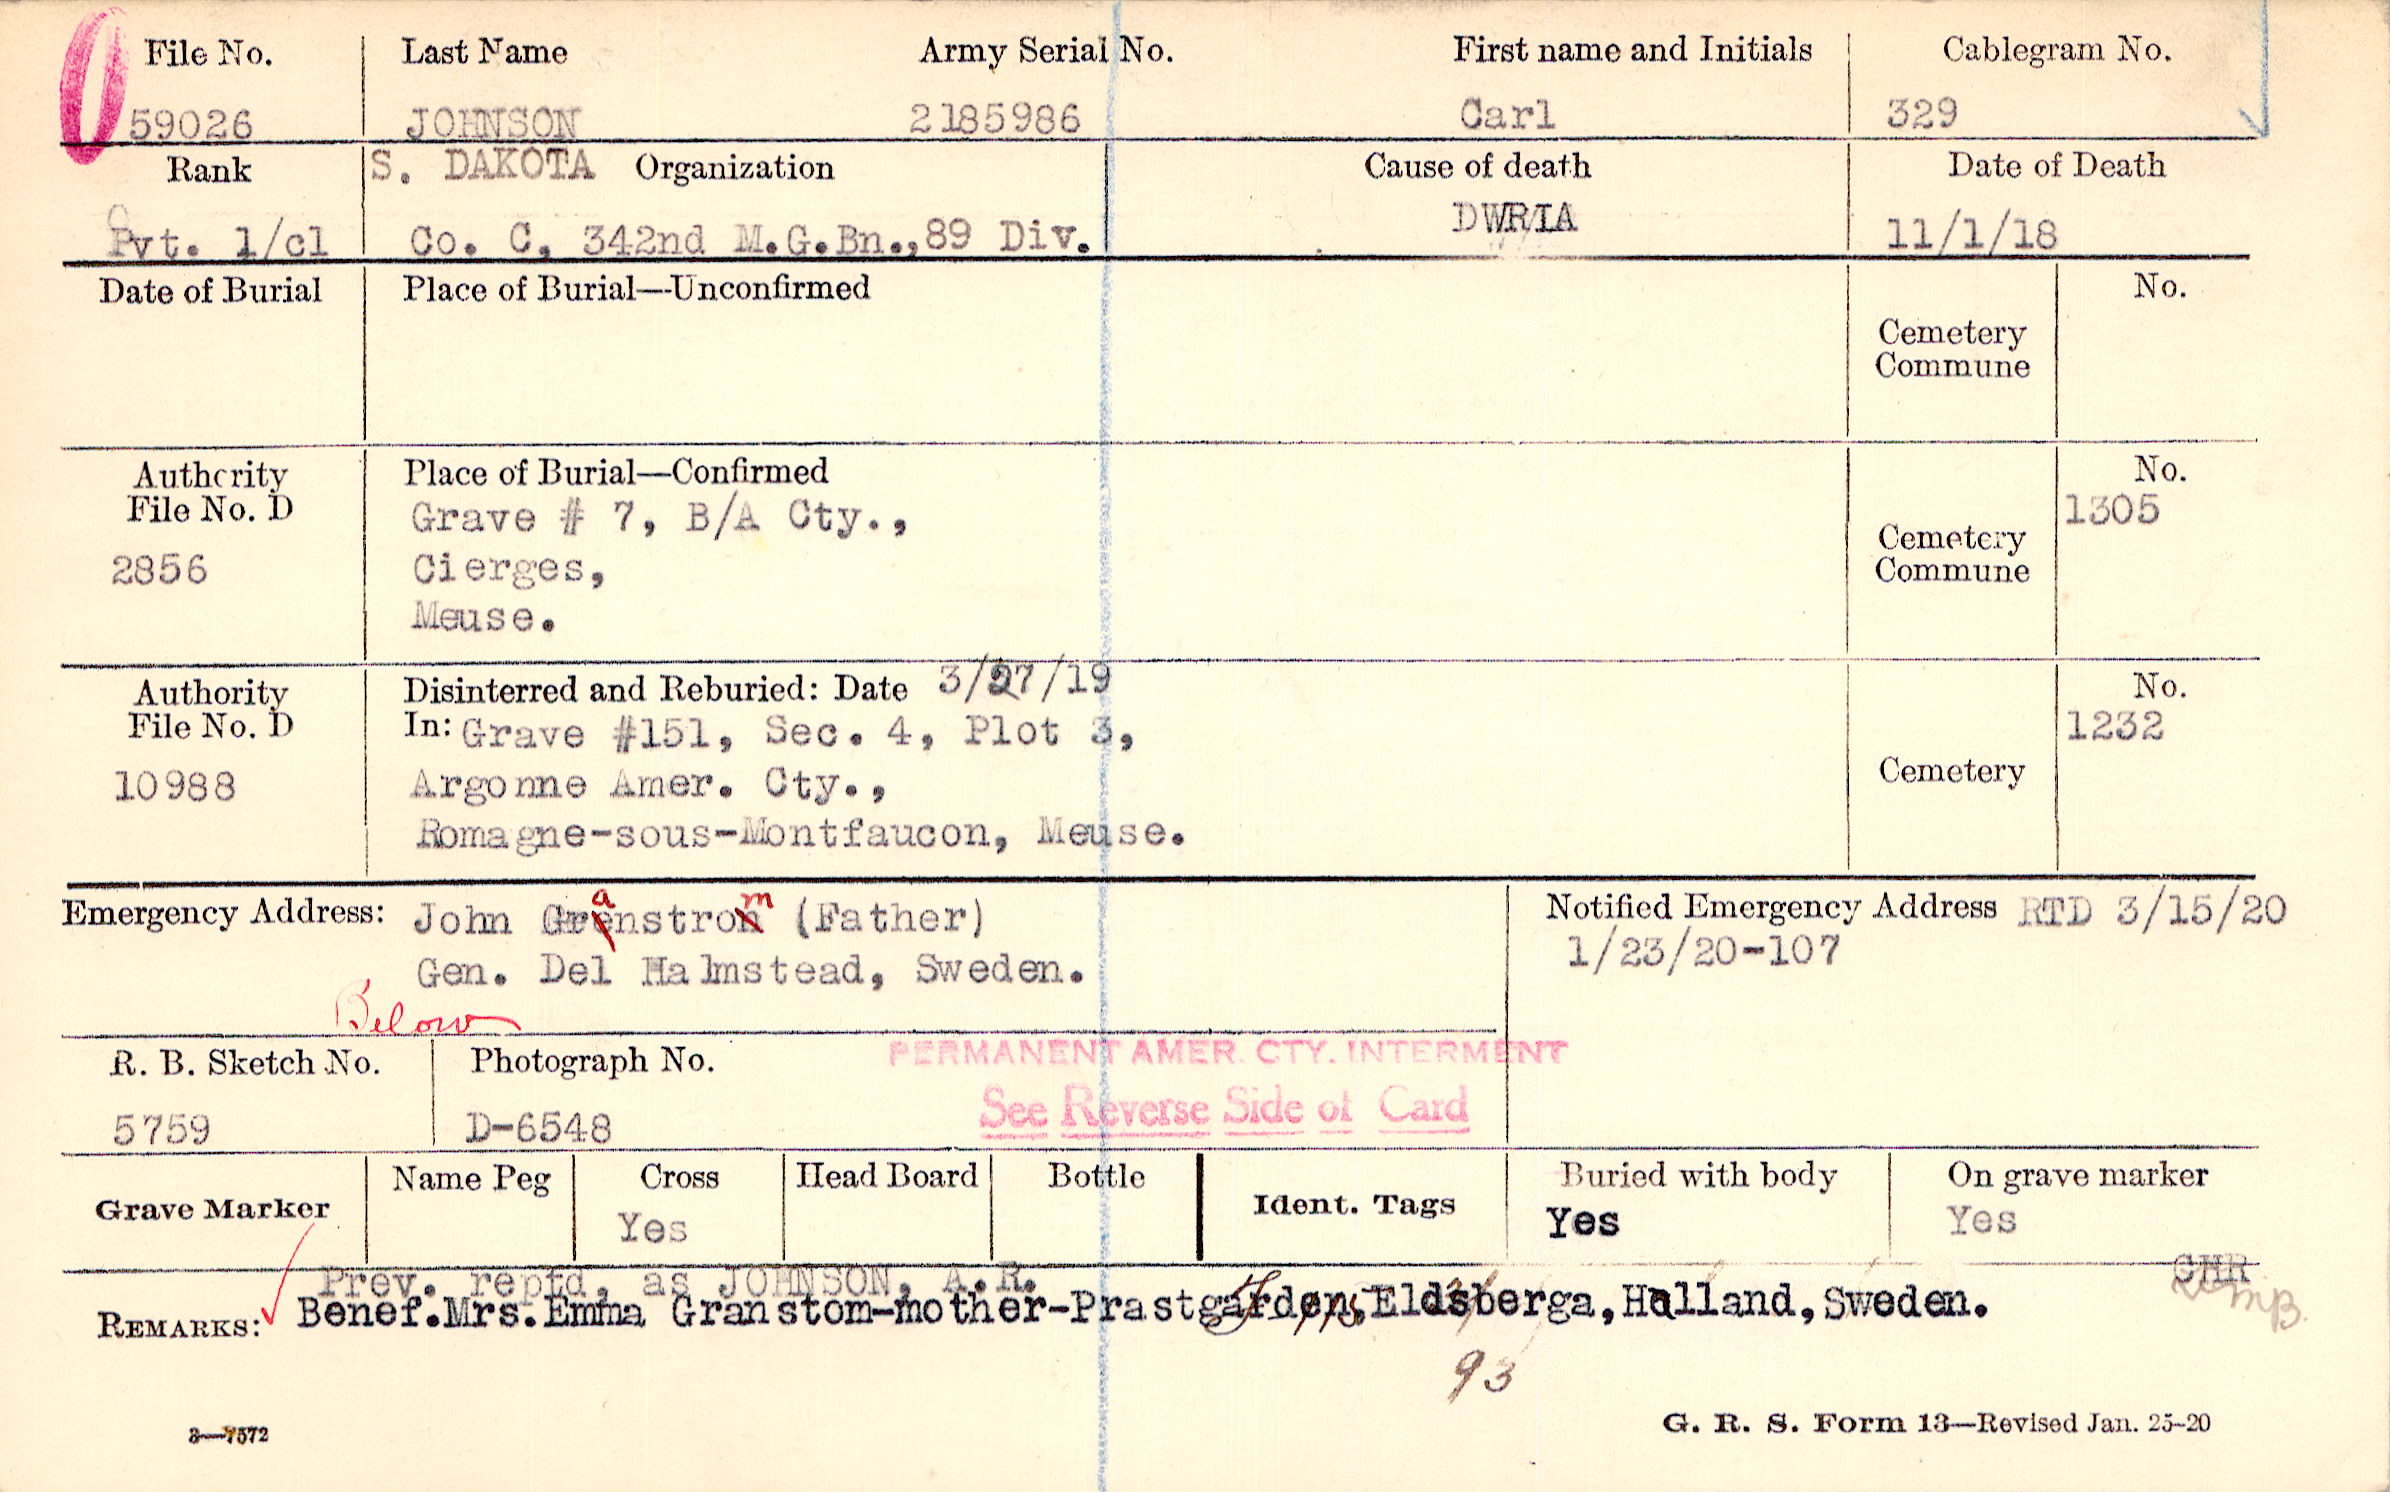 File No. Last Name Army Serial No. First name and Initials Cablegram No.
59026 JOHNSON 2185986 Carl 329
Rank S. DAKOTA Organization Cause of death Date of Death
Pvt. 1/cl Co. C, 342nd M.G.Bn.,89 Div. DWRIA 11/1/18
Date of Burial Place of Burial—Unconfirmed No.
Cemetery
Commune
Authority Place of Burial—Confirmed No.
File No. D Grave # 7, B/A Cty., 1305
2856 Cierges, Cemetery
Commune
Meuse.
Authority Disinterred and Reburied: Date 3/27/19 No.
File No. D In: Grave #151, Sec. 4, Plot 3, 1232
10988 Argonne Amer. Cty., Cemetery
Romagne-sous-Montfaucon, Meuse.
Emergency Address: John Granstrom (Father) Notified Emergency Address RTD 3/15/20
Gen. Del Halmstead, Sweden. 1/23/20-107
Below
R. B. Sketch No. Photograph No. PERMANENT AMER. CTY. INTERMENT
5759 D-6548 See Reverse Side of Card
Grave Marker Name Peg Cross Head Board Bottle Ident. Tags Buried with body On grave marker
Yes Yes Yes
Prev. reptd. as JOHNSON, A.R. GHR
REMARKS: Benef.Mrs.Emma Granstom-mother-Prastgarden,Eldsberga,Halland,Sweden. MB.
93
3—7572 G. R. S. Form 13—Revised Jan. 25-20